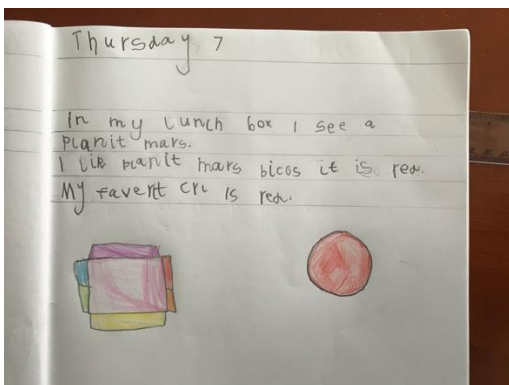 Thursday 7
in my lunch box I see a
planit mars.
I lik planit mars bicos it is red.
My faverit crl is red.